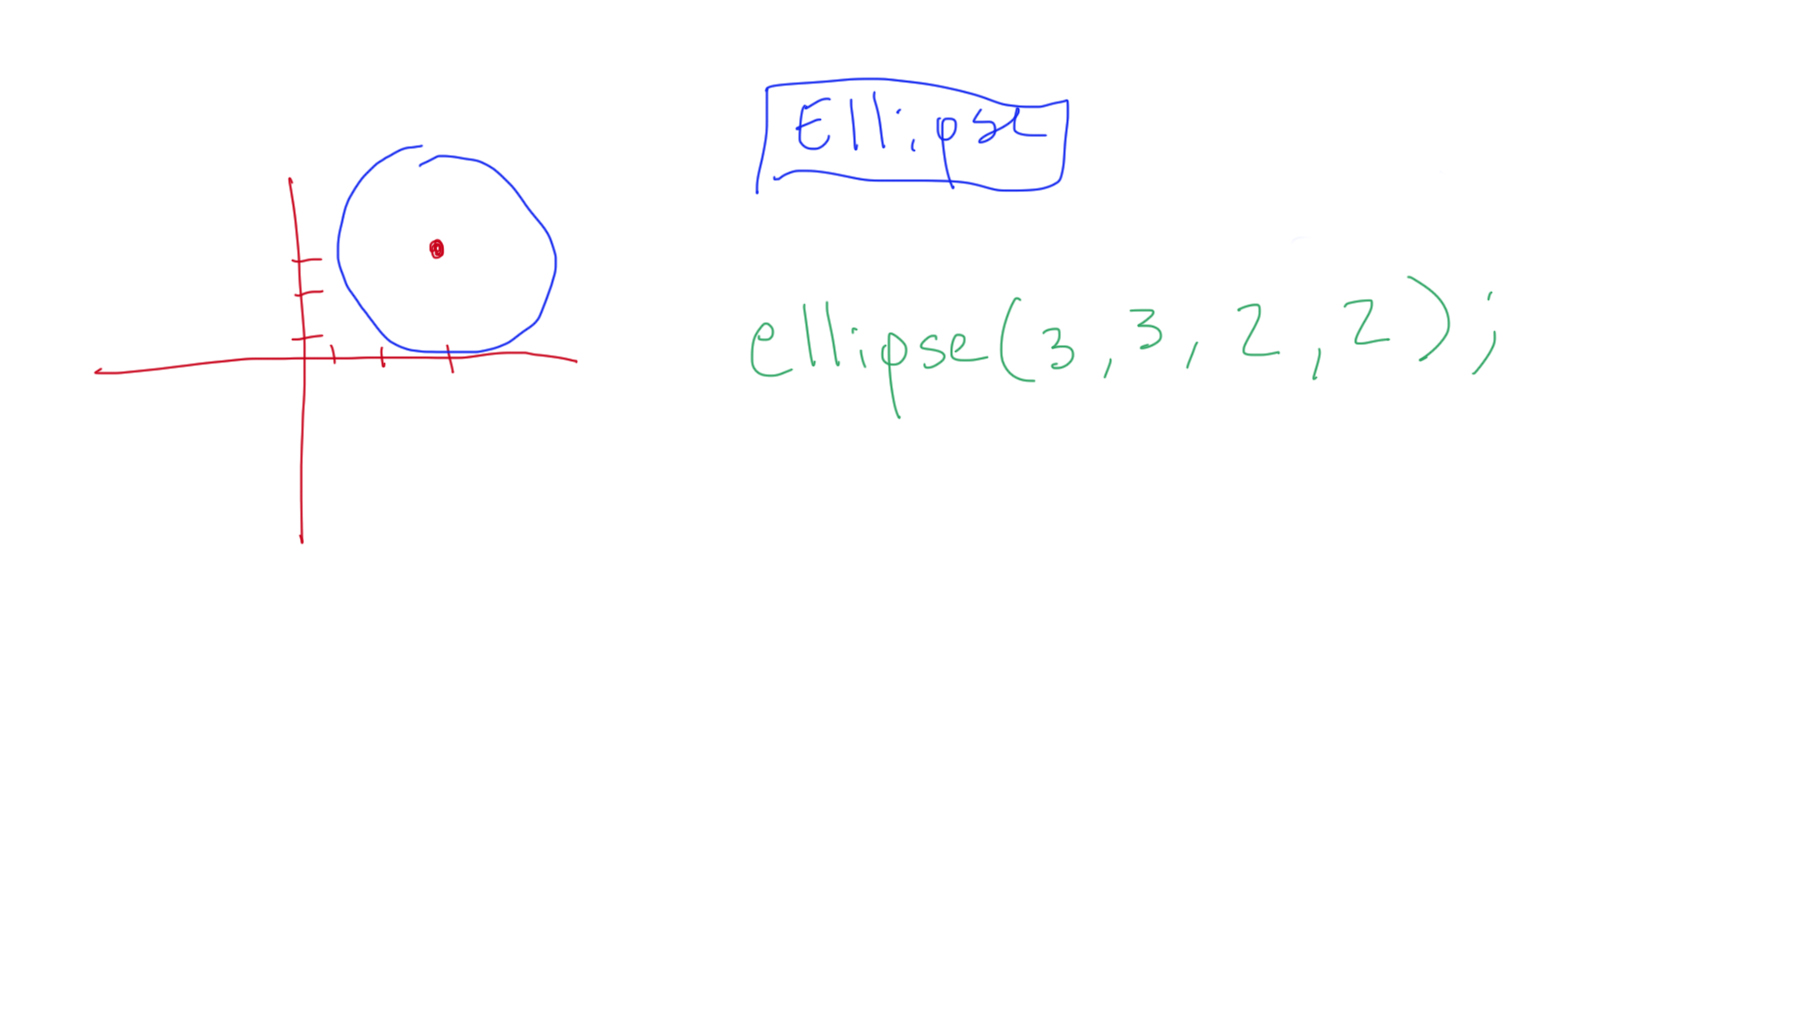 Ellipse
ellipse(3,3,2,2);